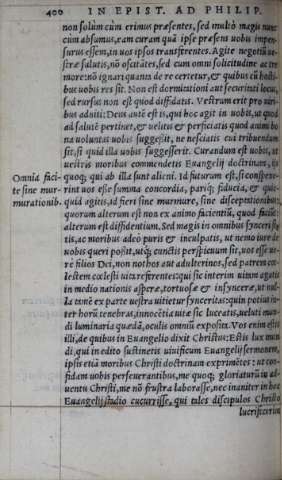 400 IN EPIST. AD PHILIP.
non solùm cùm erimus præsentes, sed multò magis nunc
cùm absumus, eam curam quã ipse præsens uobis impen-
surus essem, in uos ipsos transferentes. Agite negotiũ ue-
stræ salutis, nõ oscitãtes, sed cum omni solicitudine ac tre
more: nõ ignari quanta de re certetur, & quibus cũ hosti-
bus uobis res sit. Non est dormitationi aut securitati locus,
sed rursus non est quod diffidatis. Vestrum erit pro uiri-
bus adniti: Deus autẽ est is, qui hoc agit in uobis, ut quod
ad salutẽ pertinet, & uelitis & perficiatis quod animi bo
na uoluntas uobis suggessit, ne nesciatis cui tribuendum
sit, si quid illa uobis suggesserit. Curandum est uobis, ut
uestris moribus commendetis Euangelij doctrinam, ijs
quoq; qui ab illa sunt alieni. Id futurum est, si conspexe-
rint uos esse summa concordia, pariq; fiducia, & quic-
quid agitis, id fieri sine murmure, sine disceptationibus,
quorum alterum est non ex animo facientiũ, quod faciũt:
alterum est diffidentium. Sed magis in omnibus synceri sitis
tis, ac moribus adeò puris & inculpatis, ut nemo iure de
uobis queri possit, utq; cunctis perspicuum sit, uos esse ue-
rè filios Dei, non nothos aut adulterinos, sed patrem cœ-
lestem cœlesti uita referentes: qui sic interim uitam agatis
in medio nationis asperæ, tortuosæ & insynceræ, ut nul-
la tamẽ ex parte uestra uitietur synceritas: quin potius in-
ter horũ tenebras, innocẽtia uitæ sic luceatis, ueluti mun-
di luminaria quædã, oculis omniũ exposita. Vos enim estis
illi, de quibus in Euangelio dixit Christus: Estis lux mun
di, qui in edito sustinetis uiuificum Euangelij sermonem,
ipsis etiã moribus Christi doctrinam exprimẽtes: ut con-
fidam uobis perseuerantibus, me quoq; gloriaturũ in ad-
uentu Christi, me nõ frustra laborasse, nec inaniter in hoc
Euangelij stadio cucurrisse, qui tales discipulos Christo
lucrifecerim
Omnia faci-
te sine mur-
murationib.